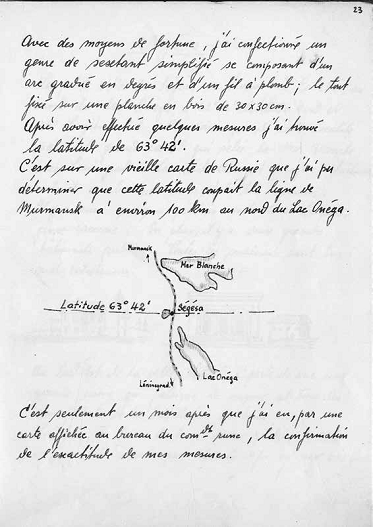 23
Avec des moyens de fortune, j'ai confectionné un
genre de sextant simplifié se composant d'un
arc gradué en degrés et d'un fil à plomb ; le tout
fixé sur une planche en bois de 30 x 30 cm.
Après avoir effectué quelques mesures j'ai trouvé
la latitude de 63° 42'.
C'est sur une vieille carte de Russie que j'ai pu
déterminer que cette latitude coupait la ligne de
Murmansk à environ 100 km au nord du Lac Onéga.
Murmansk
Mer Blanche
Latitude 63° 42'
Ségésa
Lac Onéga
Léningrad
C'est seulement un mois après que j'ai eu, par une
carte affichée au bureau du comdt russe, la confirmation
de l'exactitude de mes mesures.